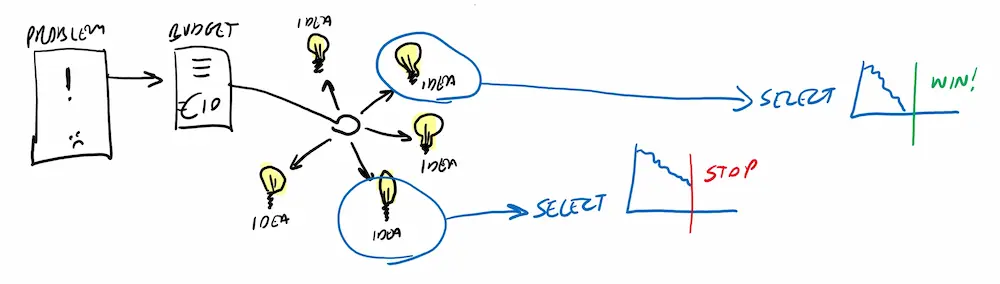 PROBLEM
!
BUDGET
€10
IDEA
IDEA
IDEA
IDEA
IDEA
SELECT
WIN!
SELECT
STOP